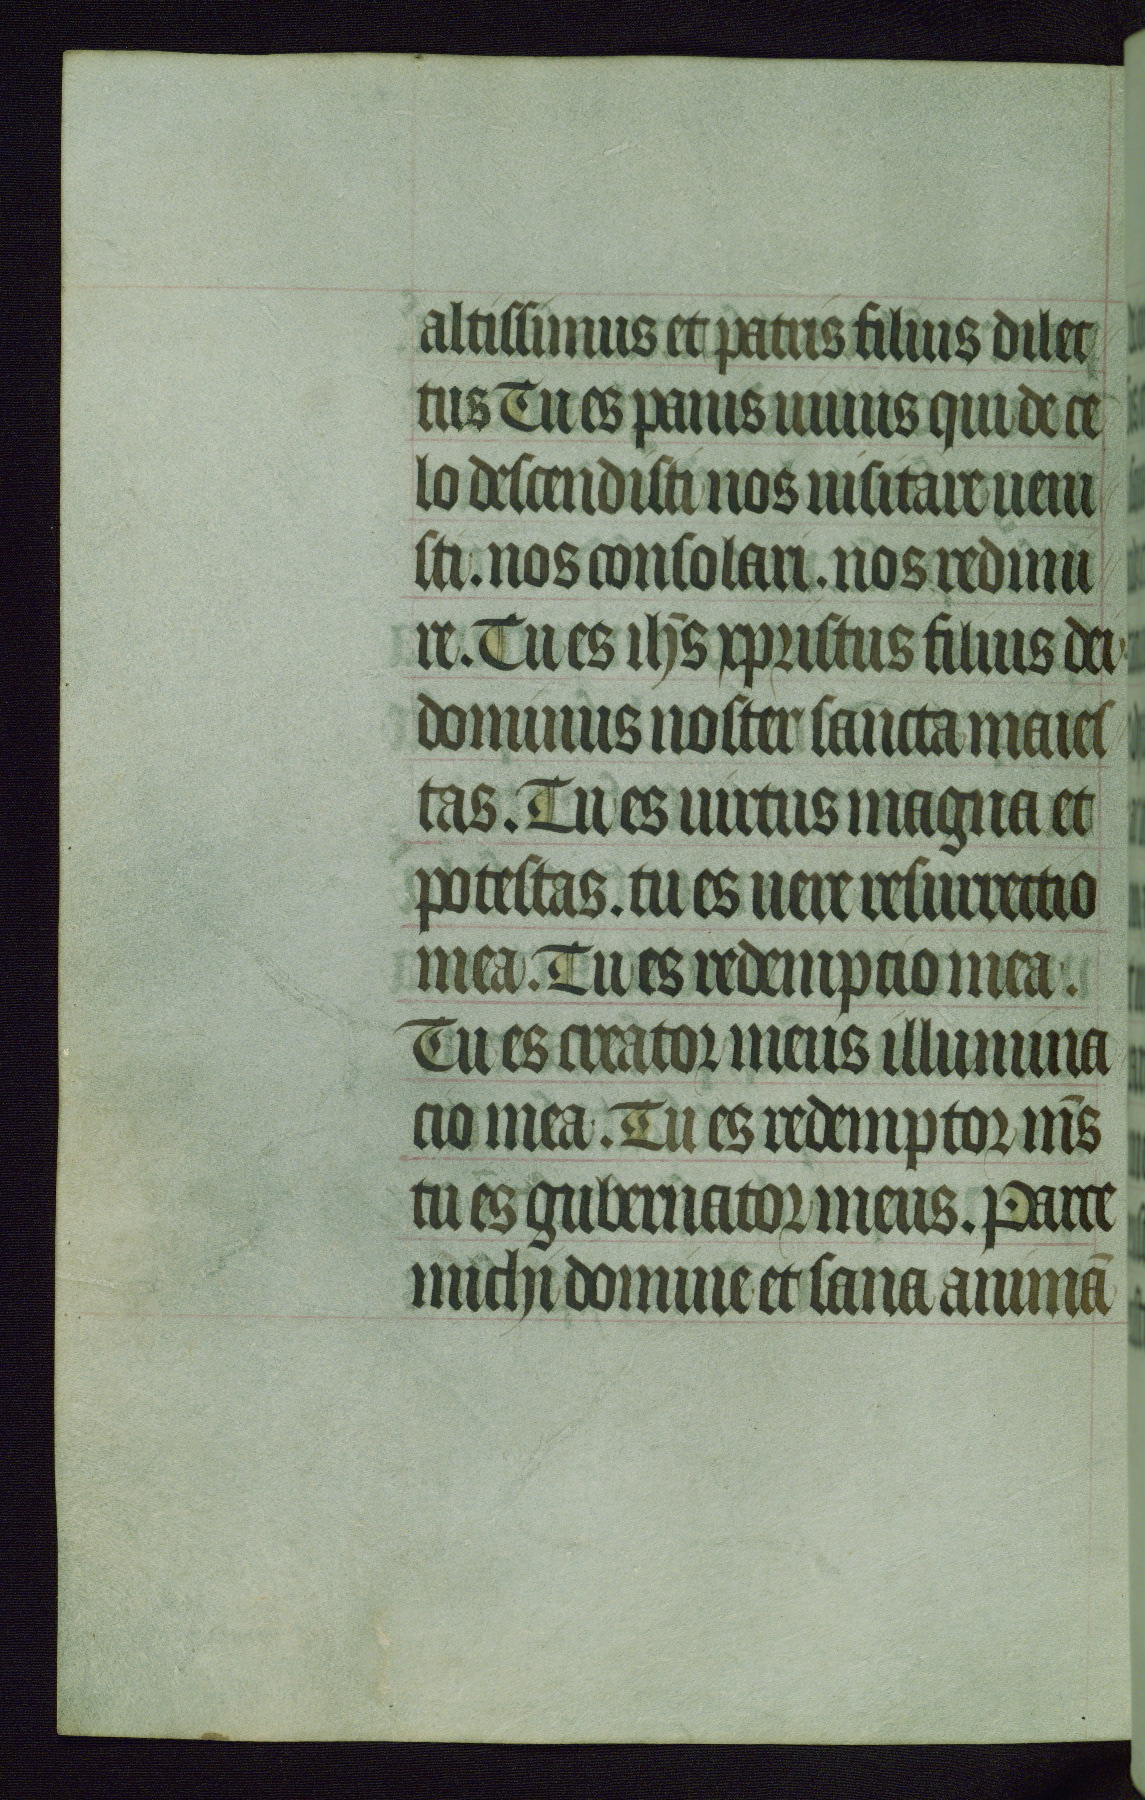 altissimus et patris filius dilec
tus Tu es panis uiuus qui de ce
lo descendisti nos uisitare ueni
sti. nos consolari. nos redimi
re. Tu es ihs̄ xpristus filius dei
dominus noster sancta maies
tas. Tu es uirtus magna et
potestas. tu es uere resurrectio
mea. Tu es redempcio mea.
Tu es creator meus illumina
cio mea. Tu es redemptor ms̄
tu es gubernator meus. Parce
michi domine et sana animā